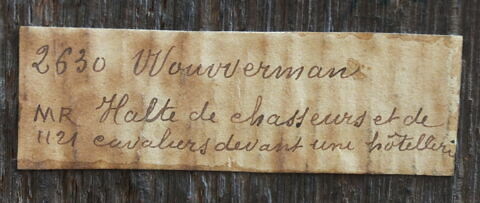 2630 Wouwerman
MR Halte de chasseurs et de
1121 cavaliers devant une hôtelleri